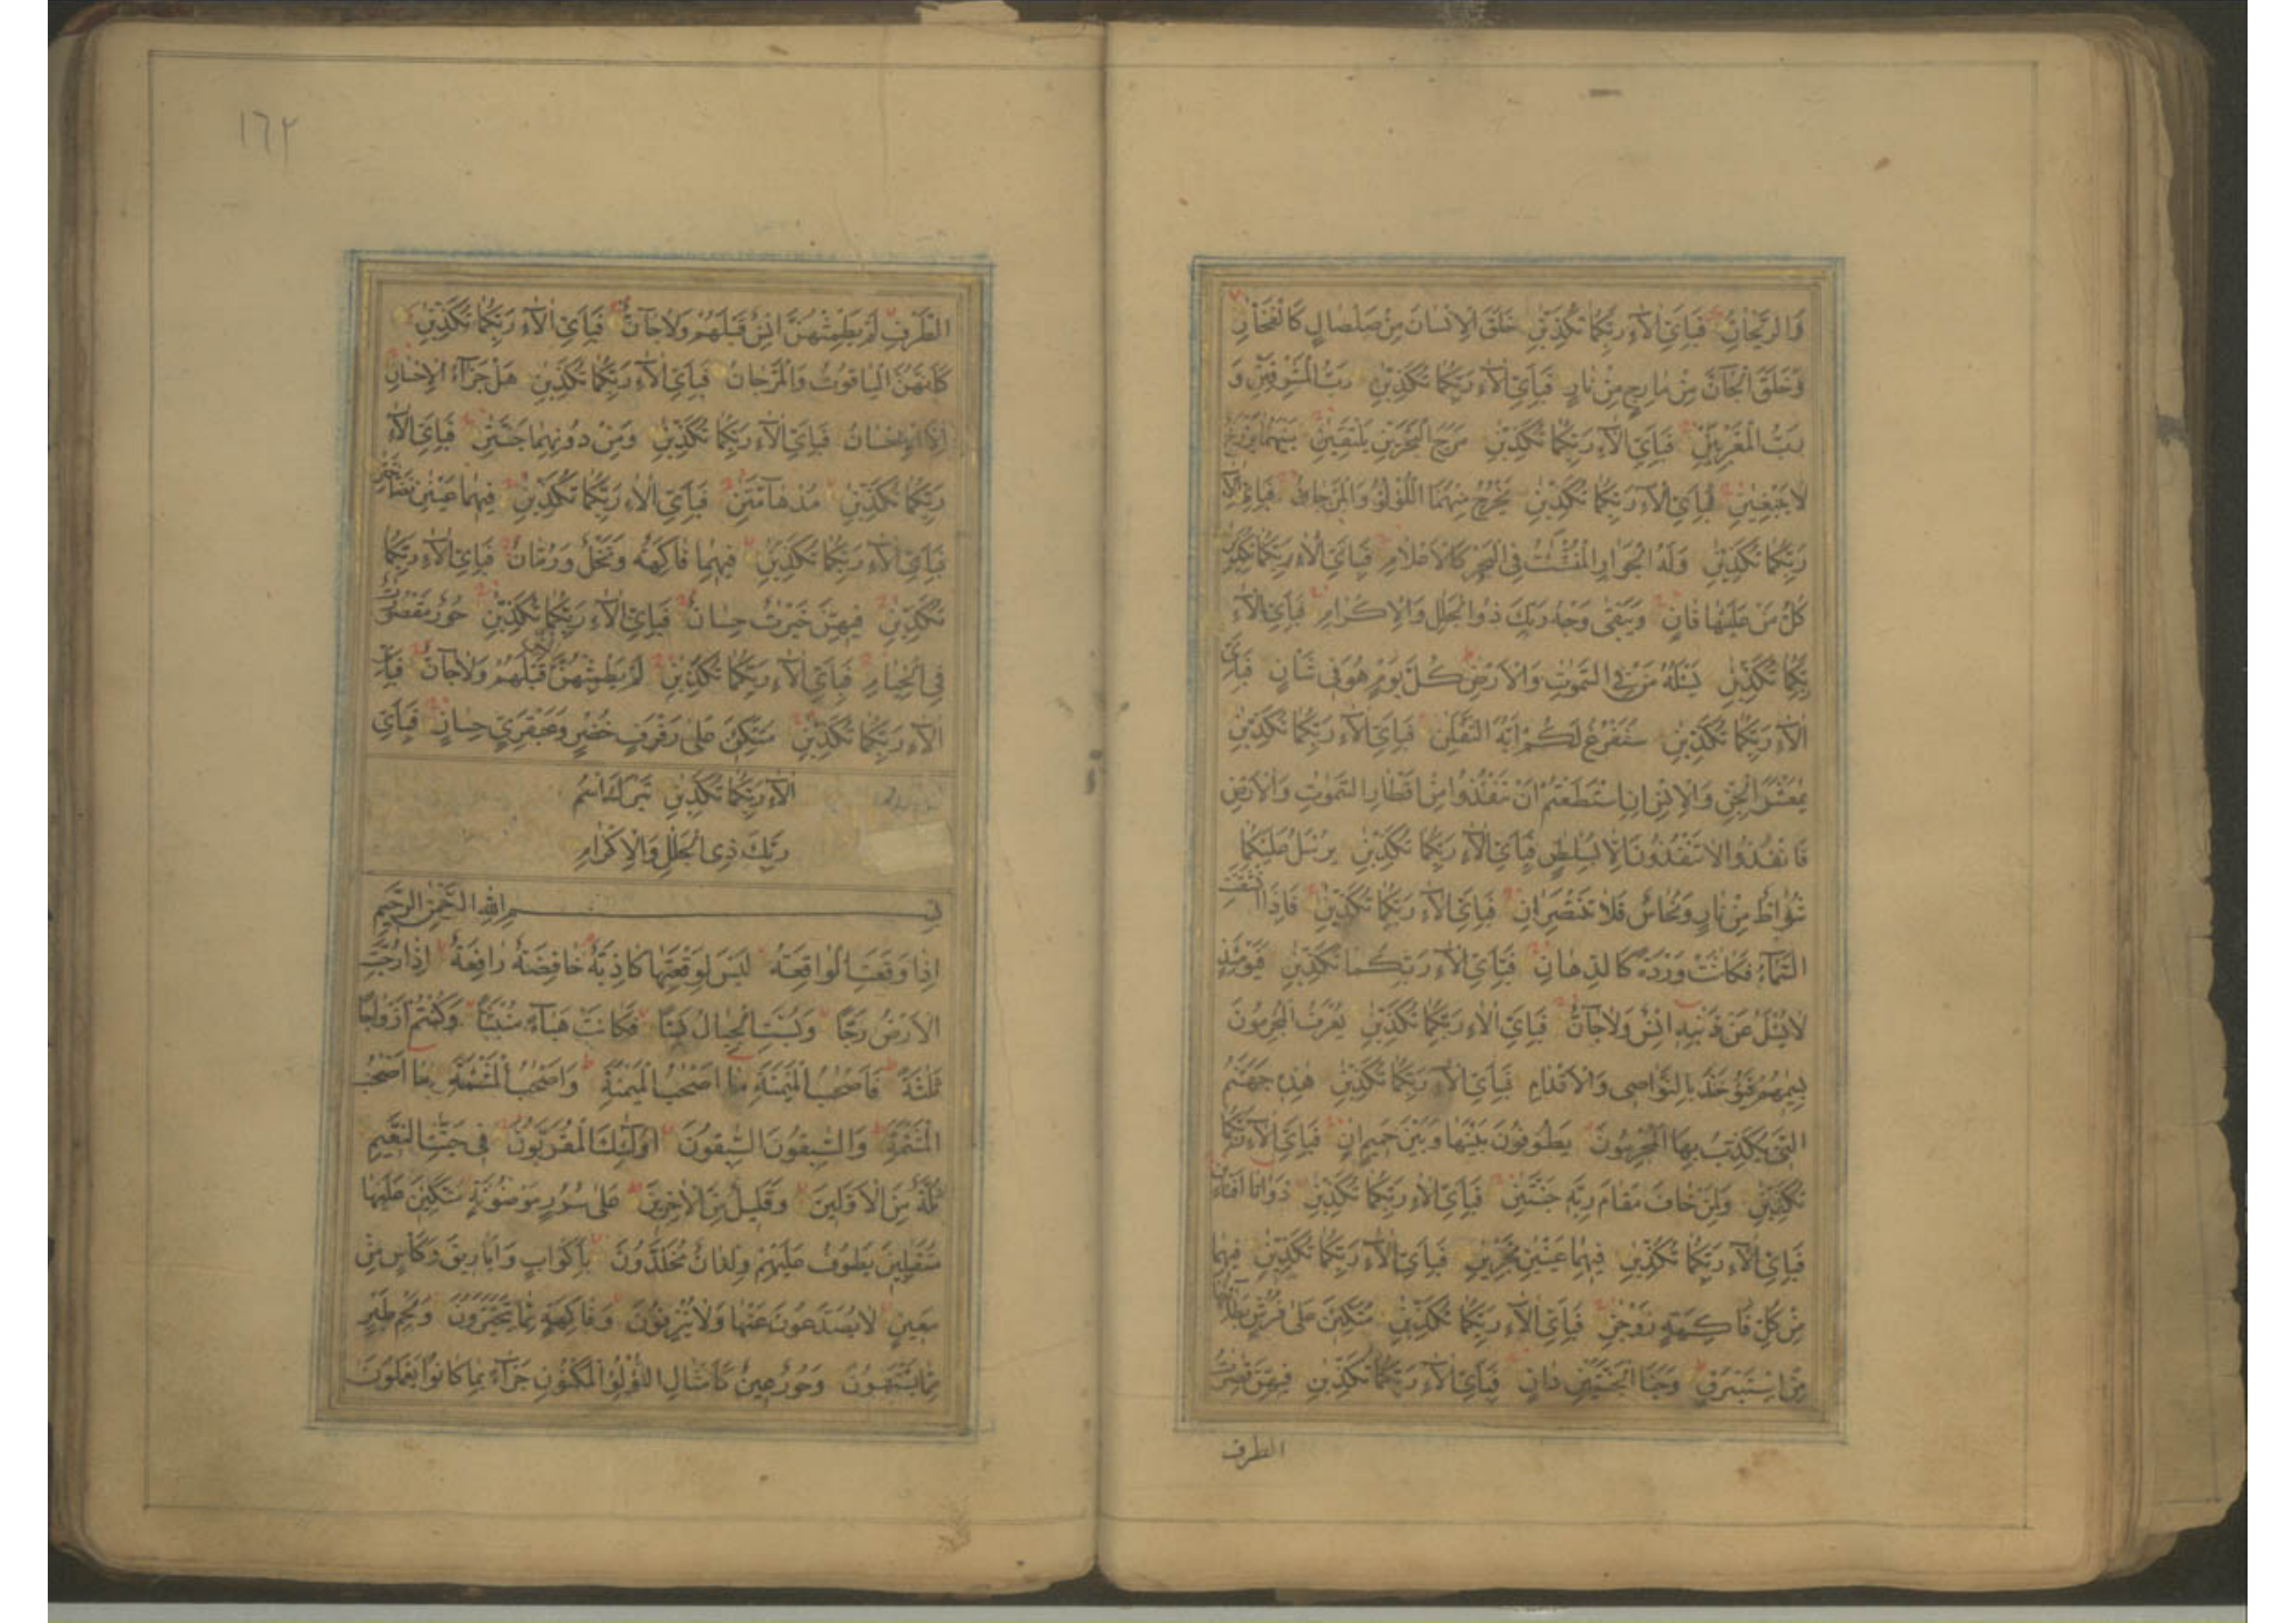 وَالرَّيْحَانُ فَبِاَيِّ اٰلَآءِ رَبِّكُمَا تُكَذِّبٰنِ خَلَقَ الْاِنْسَانَ مِنْ صَلْصَالٍ كَالْفَخَّارِ
وَخَلَقَ الْجَآنَّ مِنْ مَارِجٍ مِنْ نَارٍ فَبِاَيِّ اٰلَآءِ رَبِّكُمَا تُكَذِّبٰنِ رَبُّ الْمَشْرِقَيْنِ وَ
رَبُّ الْمَغْرِبَيْنِ فَبِاَيِّ اٰلَآءِ رَبِّكُمَا تُكَذِّبٰنِ مَرَجَ الْبَحْرَيْنِ يَلْتَقِيٰنِ بَيْنَهُمَا بَرْزَخٌ
لَا يَبْغِيٰنِ فَبِاَيِّ اٰلَآءِ رَبِّكُمَا تُكَذِّبٰنِ يَخْرُجُ مِنْهُمَا اللُّؤْلُؤُ وَالْمَرْجَانُ فَبِاَيِّ اٰلَآءِ
رَبِّكُمَا تُكَذِّبٰنِ وَلَهُ الْجَوَارِ الْمُنْشَئٰتُ فِي الْبَحْرِ كَالْاَعْلَامِ فَبِاَيِّ اٰلَآءِ رَبِّكُمَا تُكَذِّبٰنِ
كُلُّ مَنْ عَلَيْهَا فَانٍ وَيَبْقٰى وَجْهُ رَبِّكَ ذُو الْجَلٰلِ وَالْاِكْرَامِ فَبِاَيِّ اٰلَآءِ
رَبِّكُمَا تُكَذِّبٰنِ يَسْئَلُهُ مَنْ فِي السَّمٰوٰتِ وَالْاَرْضِ كُلَّ يَوْمٍ هُوَ فِي شَانٍ فَبِاَيِّ
اٰلَآءِ رَبِّكُمَا تُكَذِّبٰنِ سَنَفْرُغُ لَكُمْ اَيُّهَ الثَّقَلٰنِ فَبِاَيِّ اٰلَآءِ رَبِّكُمَا تُكَذِّبٰنِ
يٰمَعْشَرَ الْجِنِّ وَالْاِنْسِ اِنِ اسْتَطَعْتُمْ اَنْ تَنْفُذُوا مِنْ اَقْطَارِ السَّمٰوٰتِ وَالْاَرْضِ
فَانْفُذُوا لَا تَنْفُذُونَ اِلَّا بِسُلْطٰنٍ فَبِاَيِّ اٰلَآءِ رَبِّكُمَا تُكَذِّبٰنِ يُرْسَلُ عَلَيْكُمَا
شُوَاظٌ مِنْ نَارٍ وَنُحَاسٌ فَلَا تَنْتَصِرَانِ فَبِاَيِّ اٰلَآءِ رَبِّكُمَا تُكَذِّبٰنِ فَاِذَا انْشَقَّتِ
السَّمَآءُ فَكَانَتْ وَرْدَةً كَالدِّهَانِ فَبِاَيِّ اٰلَآءِ رَبِّكُمَا تُكَذِّبٰنِ فَيَوْمَئِذٍ
لَا يُسْئَلُ عَنْ ذَنْبِهِ اِنْسٌ وَلَا جَآنٌّ فَبِاَيِّ اٰلَآءِ رَبِّكُمَا تُكَذِّبٰنِ يُعْرَفُ الْمُجْرِمُونَ
بِسِيمٰهُمْ فَيُؤْخَذُ بِالنَّوَاصِي وَالْاَقْدَامِ فَبِاَيِّ اٰلَآءِ رَبِّكُمَا تُكَذِّبٰنِ هٰذِهِ جَهَنَّمُ
الَّتِي يُكَذِّبُ بِهَا الْمُجْرِمُونَ يَطُوفُونَ بَيْنَهَا وَبَيْنَ حَمِيمٍ اٰنٍ فَبِاَيِّ اٰلَآءِ رَبِّكُمَا
تُكَذِّبٰنِ وَلِمَنْ خَافَ مَقَامَ رَبِّهِ جَنَّتٰنِ فَبِاَيِّ اٰلَآءِ رَبِّكُمَا تُكَذِّبٰنِ ذَوَاتَا اَفْنَانٍ
فَبِاَيِّ اٰلَآءِ رَبِّكُمَا تُكَذِّبٰنِ فِيهِمَا عَيْنٰنِ تَجْرِيٰنِ فَبِاَيِّ اٰلَآءِ رَبِّكُمَا تُكَذِّبٰنِ فِيهِمَا
مِنْ كُلِّ فَاكِهَةٍ زَوْجٰنِ فَبِاَيِّ اٰلَآءِ رَبِّكُمَا تُكَذِّبٰنِ مُتَّكِئِينَ عَلٰى فُرُشٍ بَطَآئِنُهَا
مِنْ اِسْتَبْرَقٍ وَجَنَا الْجَنَّتَيْنِ دَانٍ فَبِاَيِّ اٰلَآءِ رَبِّكُمَا تُكَذِّبٰنِ فِيهِنَّ قٰصِرٰتُ
الطرف
١٦٢
الطَّرْفِ لَمْ يَطْمِثْهُنَّ اِنْسٌ قَبْلَهُمْ وَلَا جَآنٌّ فَبِاَيِّ اٰلَآءِ رَبِّكُمَا تُكَذِّبٰنِ
كَاَنَّهُنَّ الْيَاقُوتُ وَالْمَرْجَانُ فَبِاَيِّ اٰلَآءِ رَبِّكُمَا تُكَذِّبٰنِ هَلْ جَزَآءُ الْاِحْسَانِ
اِلَّا الْاِحْسَانُ فَبِاَيِّ اٰلَآءِ رَبِّكُمَا تُكَذِّبٰنِ وَمِنْ دُونِهِمَا جَنَّتٰنِ فَبِاَيِّ اٰلَآءِ
رَبِّكُمَا تُكَذِّبٰنِ مُدْهَآمَّتٰنِ فَبِاَيِّ اٰلَآءِ رَبِّكُمَا تُكَذِّبٰنِ فِيهِمَا عَيْنٰنِ نَضَّاخَتٰنِ
فَبِاَيِّ اٰلَآءِ رَبِّكُمَا تُكَذِّبٰنِ فِيهِمَا فَاكِهَةٌ وَنَخْلٌ وَرُمَّانٌ فَبِاَيِّ اٰلَآءِ رَبِّكُمَا
تُكَذِّبٰنِ فِيهِنَّ خَيْرٰتٌ حِسَانٌ فَبِاَيِّ اٰلَآءِ رَبِّكُمَا تُكَذِّبٰنِ حُورٌ مَقْصُورٰتٌ
فِي الْخِيَامِ فَبِاَيِّ اٰلَآءِ رَبِّكُمَا تُكَذِّبٰنِ لَمْ يَطْمِثْهُنَّ اِنْسٌ قَبْلَهُمْ وَلَا جَآنٌّ فَبِاَيِّ
اٰلَآءِ رَبِّكُمَا تُكَذِّبٰنِ مُتَّكِئِينَ عَلٰى رَفْرَفٍ خُضْرٍ وَعَبْقَرِيٍّ حِسَانٍ فَبِاَيِّ
اٰلَآءِ رَبِّكُمَا تُكَذِّبٰنِ تَبٰرَكَ اسْمُ
رَبِّكَ ذِي الْجَلٰلِ وَالْاِكْرَامِ
بِسْمِ اللّٰهِ الرَّحْمٰنِ الرَّحِيمِ
اِذَا وَقَعَتِ الْوَاقِعَةُ لَيْسَ لِوَقْعَتِهَا كَاذِبَةٌ خَافِضَةٌ رَافِعَةٌ اِذَا رُجَّتِ
الْاَرْضُ رَجًّا وَبُسَّتِ الْجِبَالُ بَسًّا فَكَانَتْ هَبَآءً مُنْبَثًّا وَكُنْتُمْ اَزْوَاجًا
ثَلٰثَةً فَاَصْحٰبُ الْمَيْمَنَةِ مَا اَصْحٰبُ الْمَيْمَنَةِ وَاَصْحٰبُ الْمَشْئَمَةِ مَا اَصْحٰبُ
الْمَشْئَمَةِ وَالسّٰبِقُونَ السّٰبِقُونَ اُولٰٓئِكَ الْمُقَرَّبُونَ فِي جَنّٰتِ النَّعِيمِ
ثُلَّةٌ مِنَ الْاَوَّلِينَ وَقَلِيلٌ مِنَ الْاٰخِرِينَ عَلٰى سُرُرٍ مَوْضُونَةٍ مُتَّكِئِينَ عَلَيْهَا
مُتَقٰبِلِينَ يَطُوفُ عَلَيْهِمْ وِلْدَانٌ مُخَلَّدُونَ بِاَكْوَابٍ وَاَبَارِيقَ وَكَاْسٍ مِنْ
مَعِينٍ لَا يُصَدَّعُونَ عَنْهَا وَلَا يُنْزِفُونَ وَفَاكِهَةٍ مِمَّا يَتَخَيَّرُونَ وَلَحْمِ طَيْرٍ
مِمَّا يَشْتَهُونَ وَحُورٌ عِينٌ كَاَمْثَالِ اللُّؤْلُؤِ الْمَكْنُونِ جَزَآءً بِمَا كَانُوا يَعْمَلُونَ